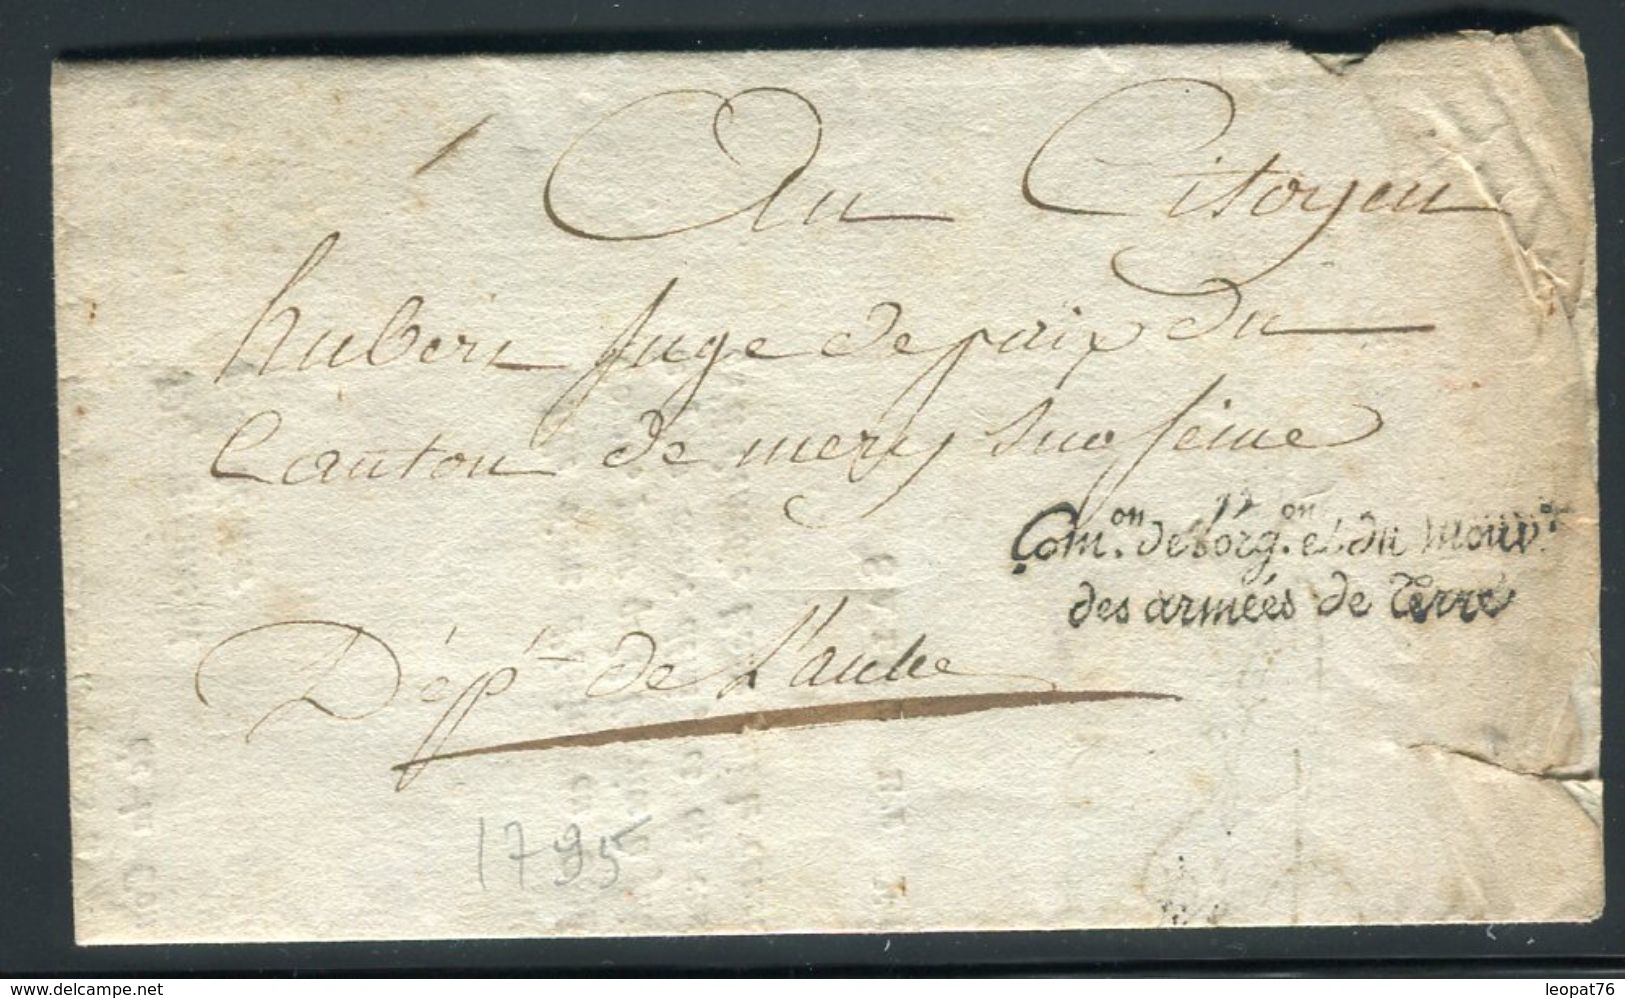 Au Citoyen
hubert Juge de paix du
Canton de mery sur seine
Com.on de l'org.on et du Mouv.t
des armées de Terre
Dépt de L'aube
1795
www.delcampe.net
leopat76